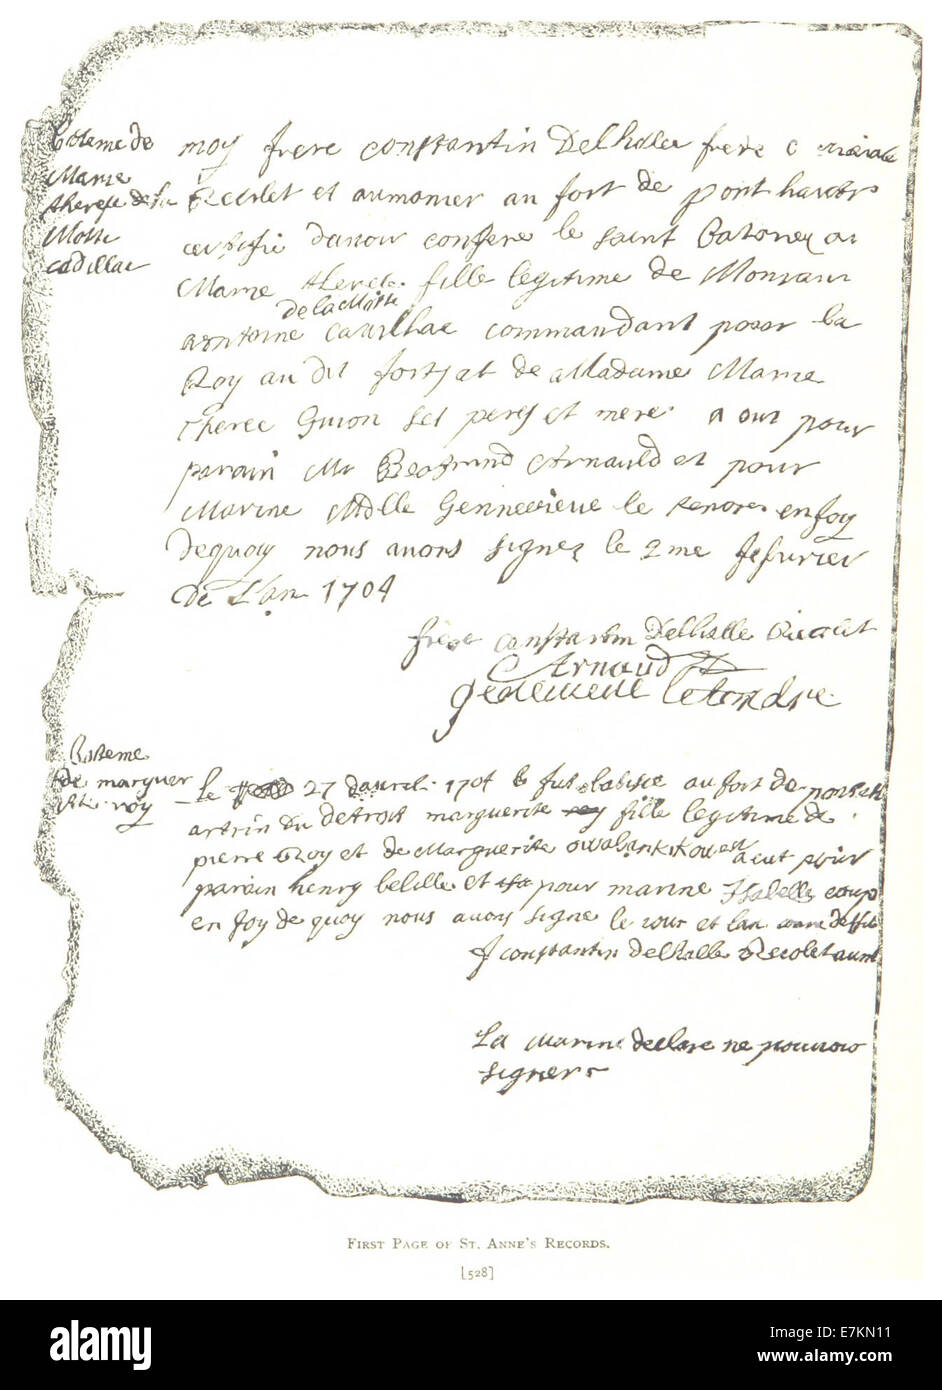 Bateme de
Marie
therese de la
Motte
Cadillac
moy frere constantin Delhalle frere
Recolet et aumonier au fort de pont
certifie danoir confere le saint
Marie therese fille legitime de Monsieur
de la Motte
antoine Cadilhac commandant pour la
Roy au dit fort et de Madame Marie
therese Guion ses peres et mere a out pour
parain Mr Bertrand Arnauld et pour
Marine Mdlle Gennevieve le enfoy
dequoy nous avons signez le 2me febvrier
de L'an 1704
frere constantin Delhalle Recolet
Arnaud
genevieve letendre
Bateme
de marguer
ite roy
le 27 davril 1704 au fort de
du detroit marguerite fille legitime de
pierre Roy et de Marguerite a eut pour
parain henry belille et pour marine Isabelle coup
en foy de quoy nous avons signe le iour et lan
f constantin delhalle Recolet aum
La Marine declare ne pouvoir
signer
First Page of St. Anne's Records.
[528]
alamy
Image ID: E7KN11
www.alamy.com